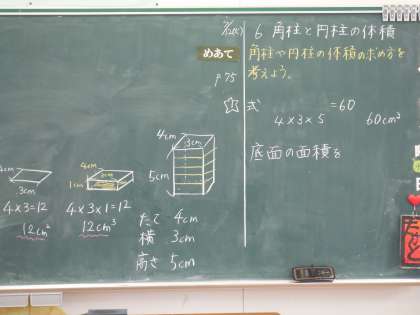 6 角柱と円柱の体積
めあて
角柱や円柱の体積の求め方を
考えよう。
P75
式
=60
4×3×5
60cm³
底面の面積を
4cm
3cm
4×3=12
12cm²
4cm
3cm
1cm
4×3×1=12
12cm³
4cm
3cm
5cm
たて 4cm
横 3cm
高さ 5cm